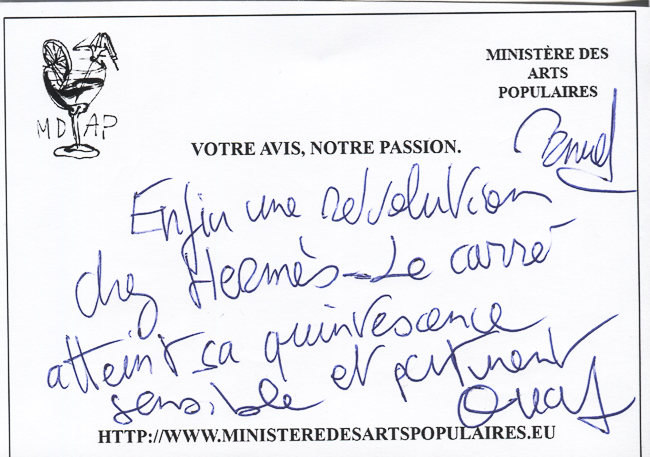 MD AP
MINISTÈRE DES
ARTS
POPULAIRES
VOTRE AVIS, NOTRE PASSION.
Enfin une révolution
chez Hermès - Le carré
atteint sa quintescence
sensible et pertinent
HTTP://WWW.MINISTEREDESARTSPOPULAIRES.EU